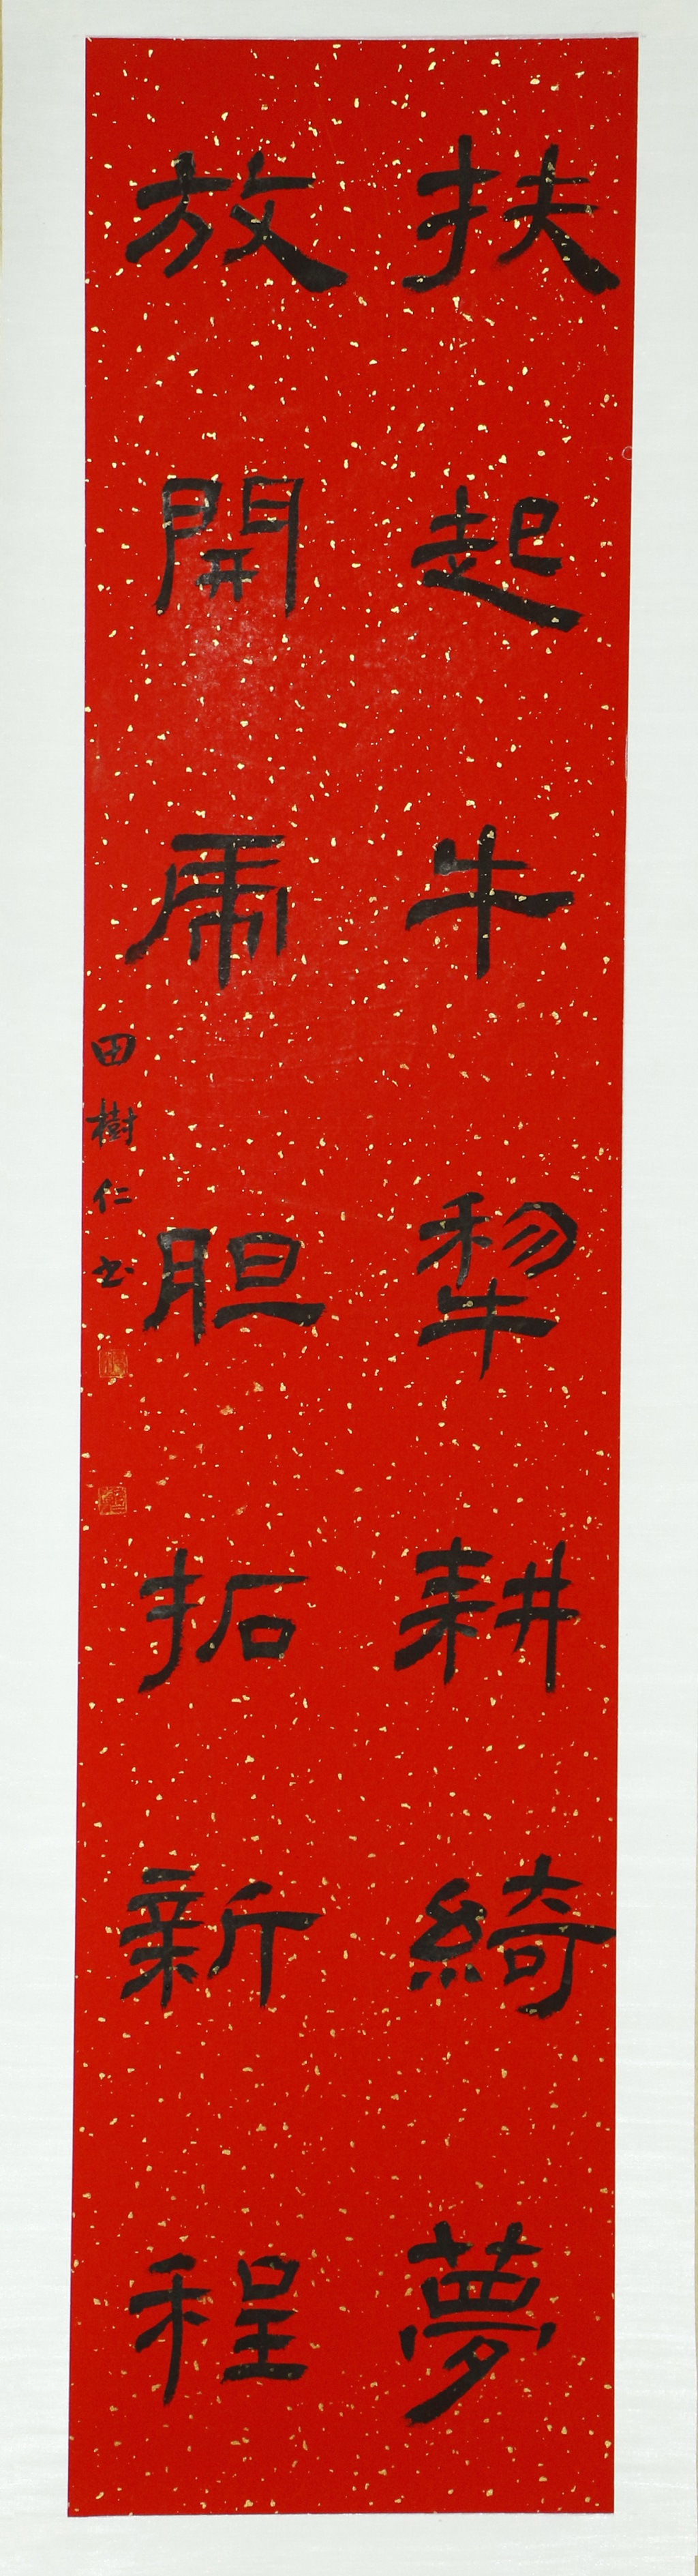 扶起牛犂耕綺夢
放開虎胆拓新程
田樹仁书